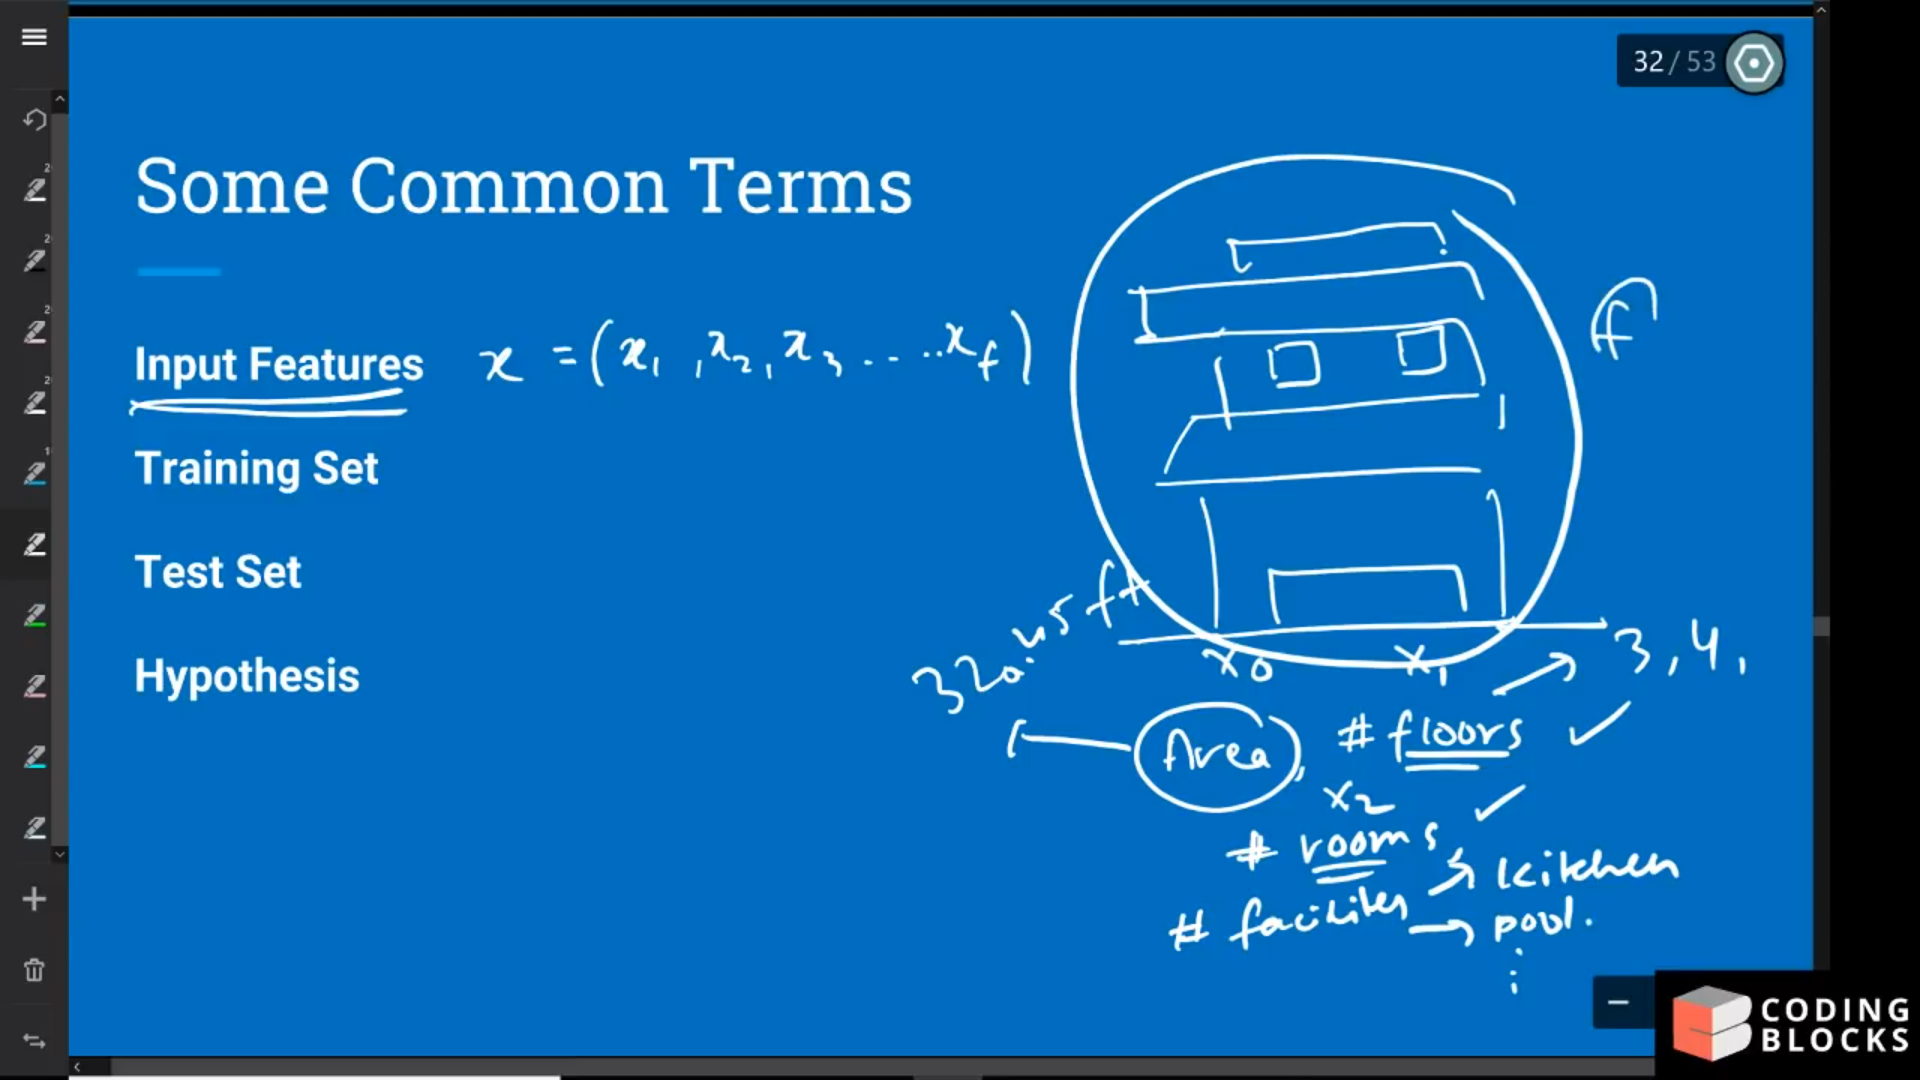 32 / 53
Some Common Terms
Input Features x = (x1, x2, x3 . . . . . xf)
f
Training Set
Test Set
Hypothesis
320.45 ft
x0 x1 3, 4,
Area, # floors
x2
# rooms
kitchen
# facilites
pool.
CODING
BLOCKS